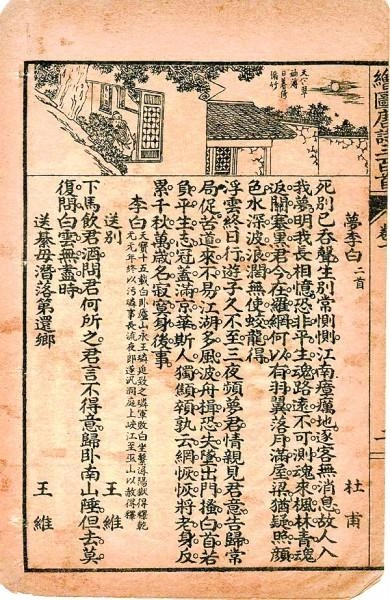 繪圖唐詩三百首
卷一
天寒翠
袖薄
日暮倚
脩竹
夢李白 二首 杜甫
死別已吞聲生別常惻惻江南瘴癘地逐客無消息故人入
我夢明我長相憶恐非平生魂路遠不可測魂來楓林青魂
返關塞黑君今在羅網何以有羽翼落月滿屋梁猶疑照顏
色水深波浪闊無使蛟龍得
浮雲終日行遊子久不至三夜頻夢君情親見君意告歸常
局促苦道來不易江湖多風波舟楫恐失墜出門搔白首若
負平生志冠蓋滿京華斯人獨顦顇孰云網恢恢將老身反
累千秋萬歲名寂寞身後事
李白 天寶十五載白臥廬山永王璘迫致之璘軍敗白坐繫潯陽獄得釋乾
元元年終以污璘事長流夜郎遂泛洞庭上峽江至巫山以赦得釋
送別 王維
下馬飲君酒問君何所之君言不得意歸臥南山陲但去莫
復問白雲無盡時
送綦毋潛落第還鄉 王維